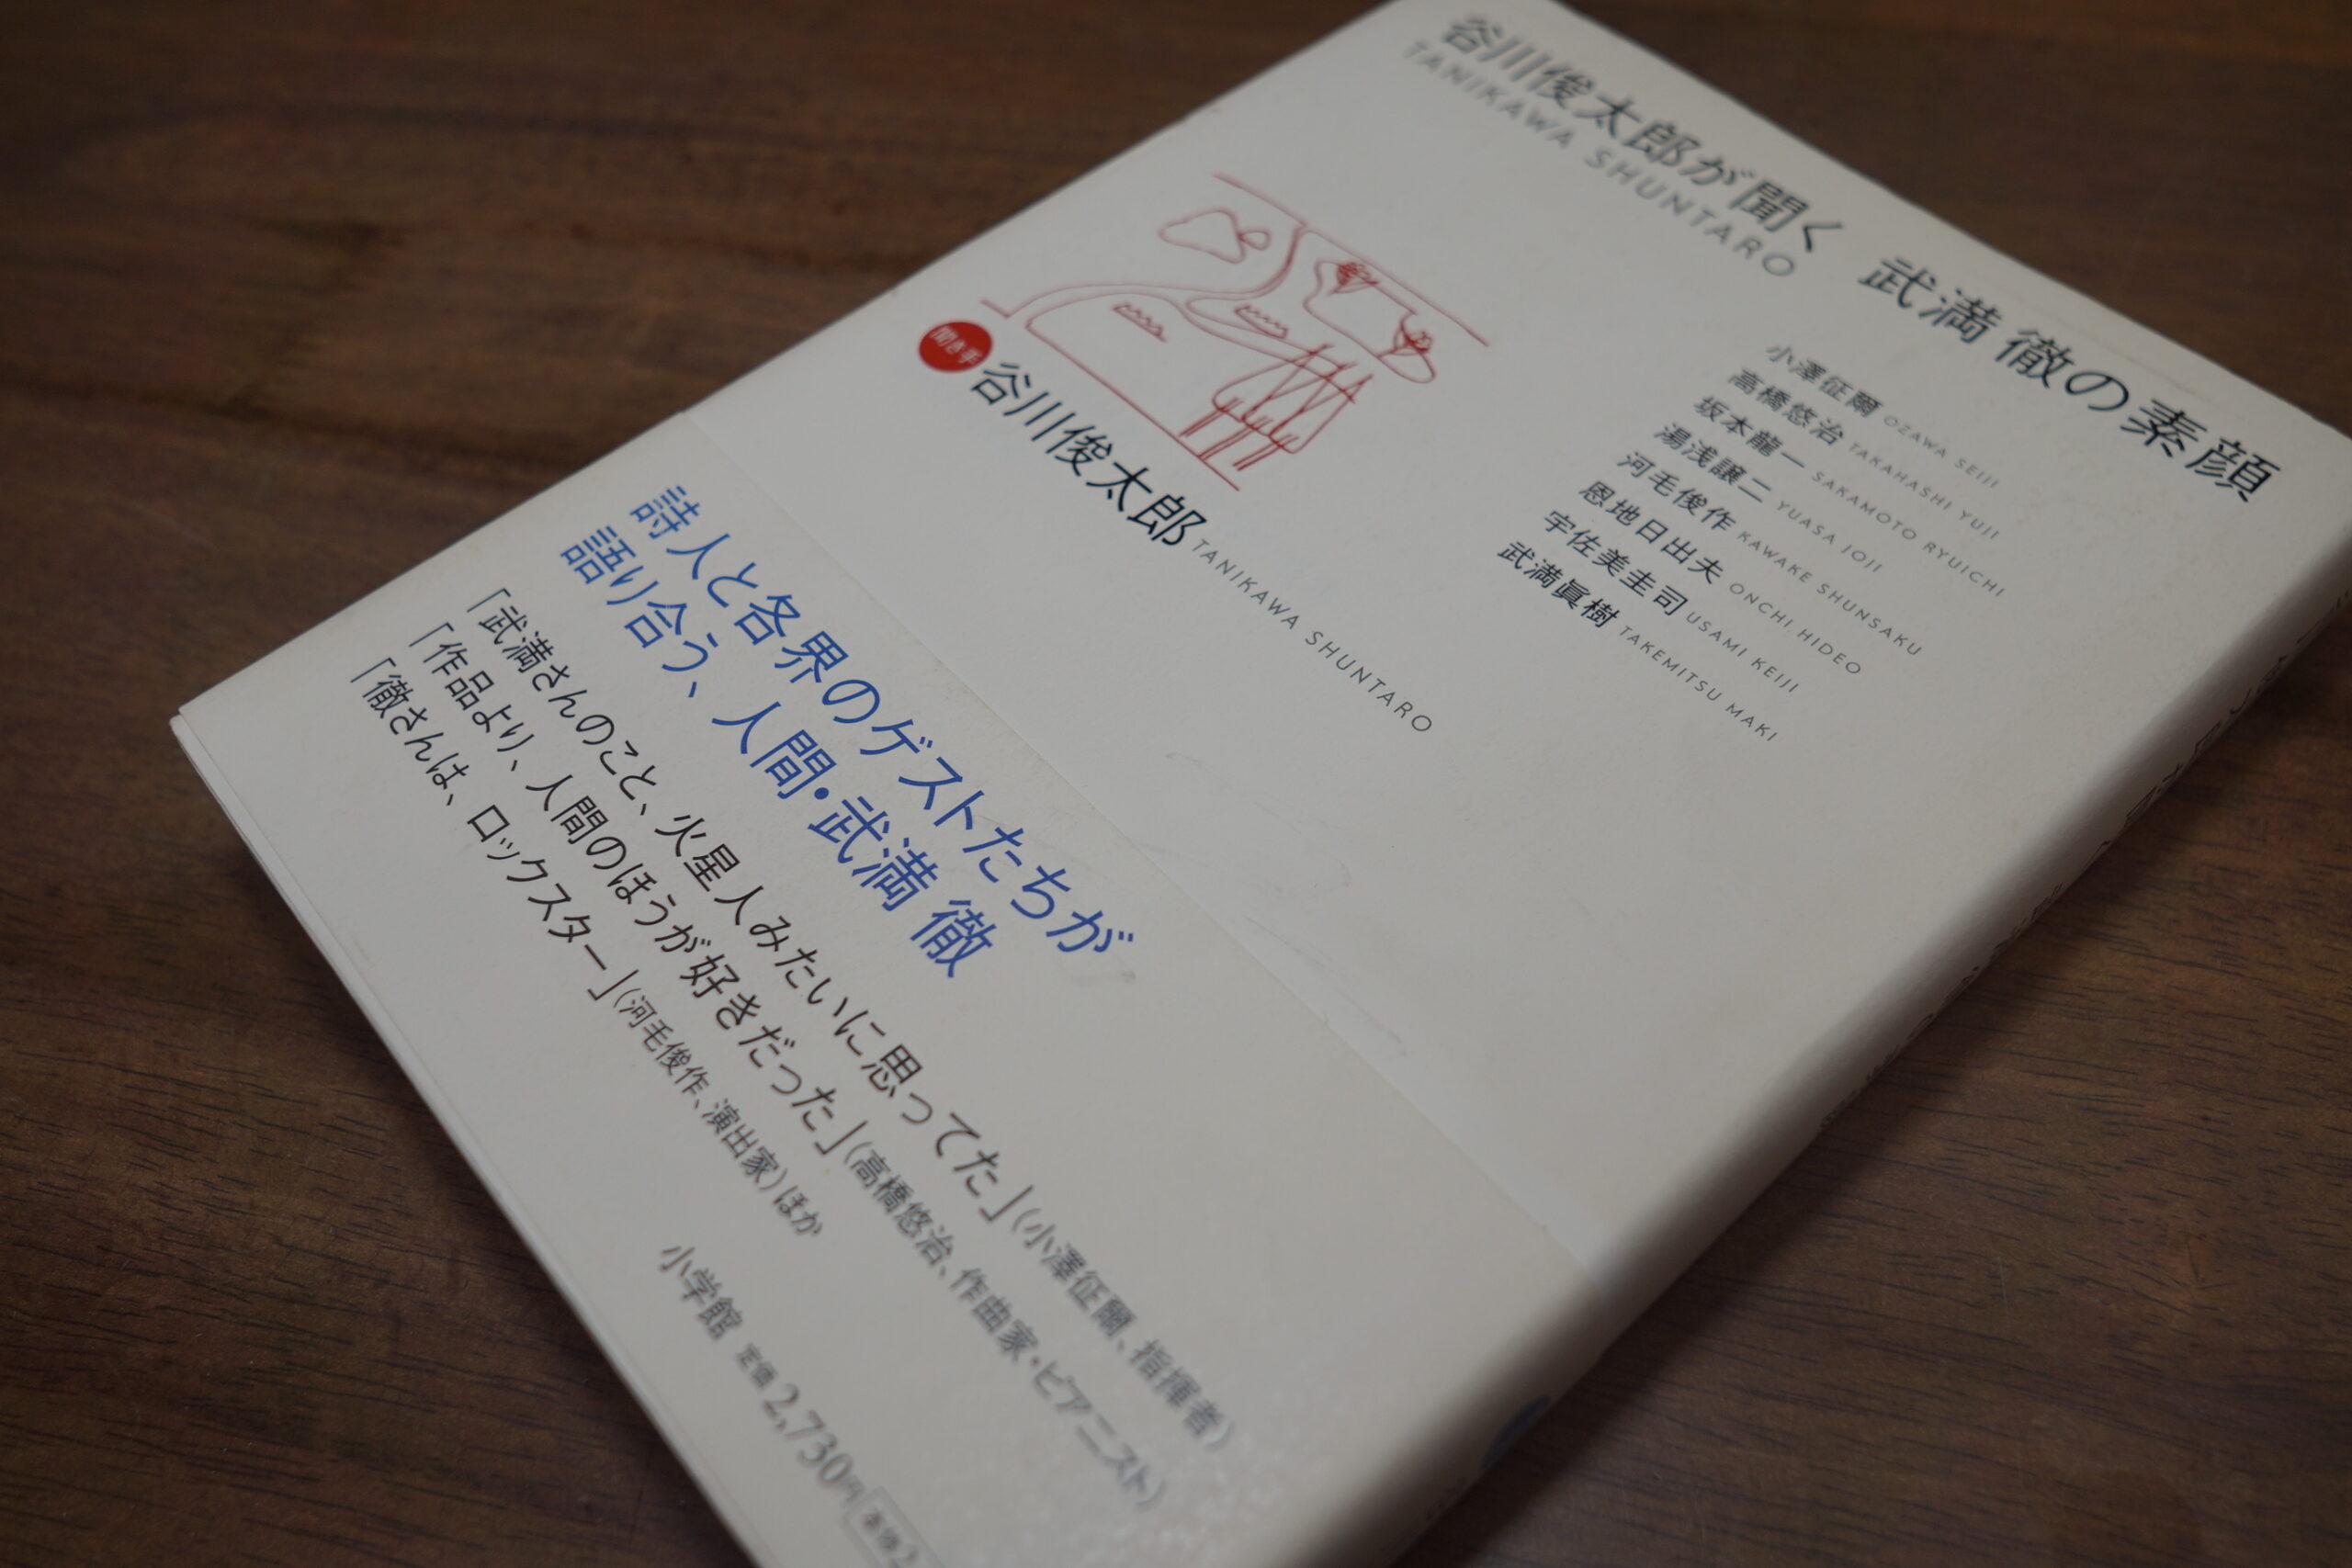 谷川俊太郎が聞く 武満 徹の素顔
TANIKAWA SHUNTARO
小澤征爾 OZAWA SEIJI
高橋悠治 TAKAHASHI YUJI
坂本龍一 SAKAMOTO RYUICHI
湯浅譲二 YUASA JOJI
河毛俊作 KAWAKE SHUNSAKU
恩地日出夫 ONCHI HIDEO
宇佐美圭司 USAMI KEIJI
武満眞樹 TAKEMITSU MAKI
聞き手 谷川俊太郎 TANIKAWA SHUNTARO
詩人と各界のゲストたちが
語り合う、人間・武満 徹
「武満さんのこと、火星人みたいに思ってた」(小澤征爾、指揮者)
「作品より、人間のほうが好きだった」(高橋悠治、作曲家・ピアニスト)
「徹さんは、ロックスター」(河毛俊作、演出家)ほか
小学館 定価 2,730円